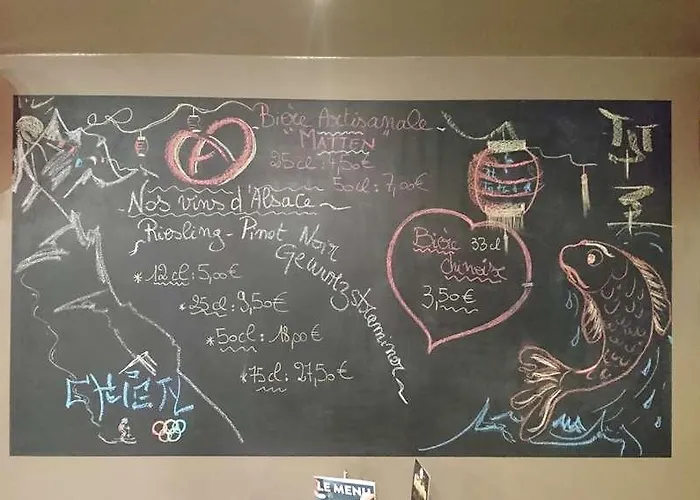 Bière Artisanale
"MATTEN"
25cl : 4,50€
50cl : 7,00€
Nos vins d'Alsace
Riesling - Pinot Noir
Gewurtzstraminer
* 12cl : 5,00€
* 25cl : 9,50€
* 50cl : 18,00€
* 75cl : 27,50€
Bière 33cl
Chinoise
3,50€
LE MENU